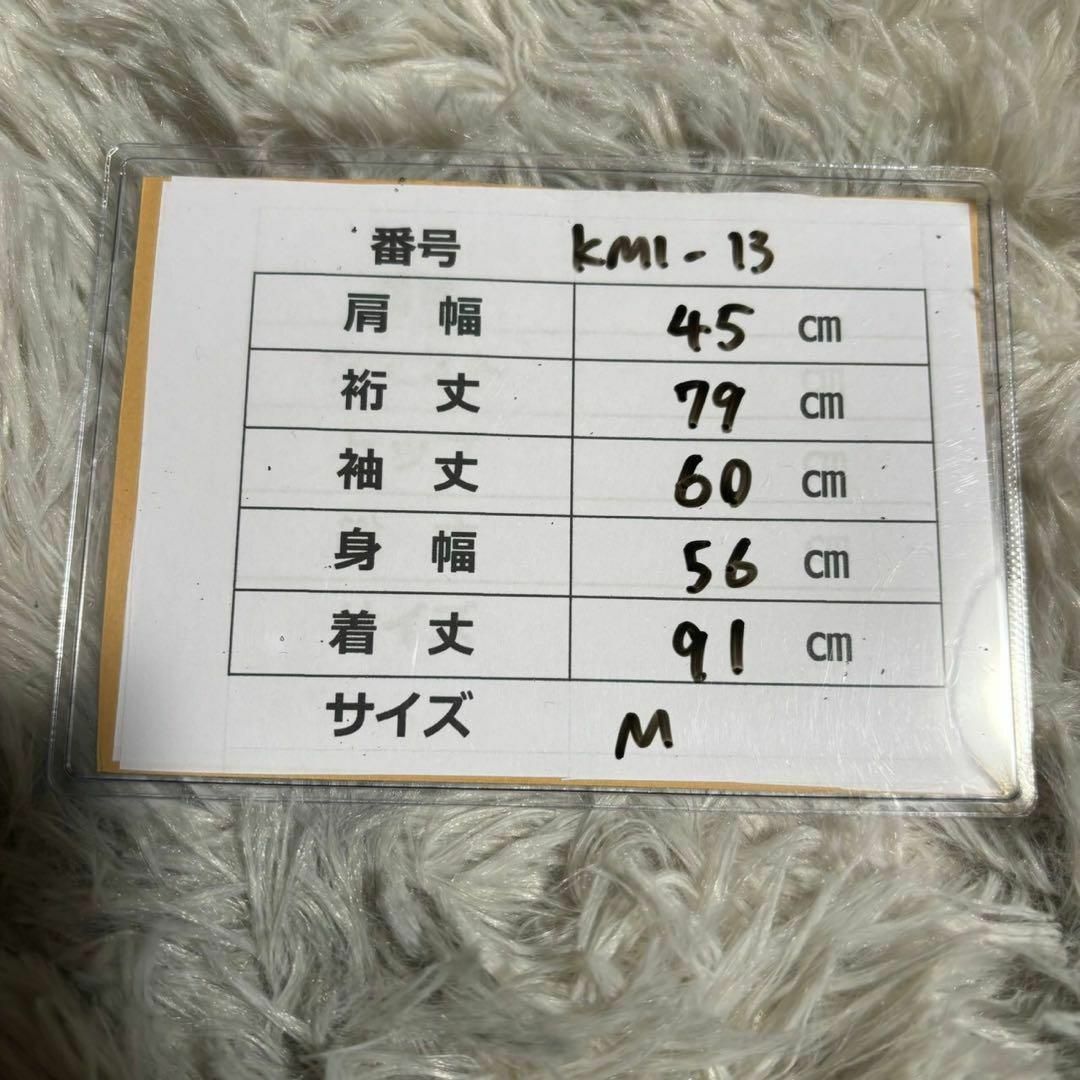 番号 KM1-13
肩幅 45 cm
裄丈 79 cm
袖丈 60 cm
身幅 56 cm
着丈 91 cm
サイズ M